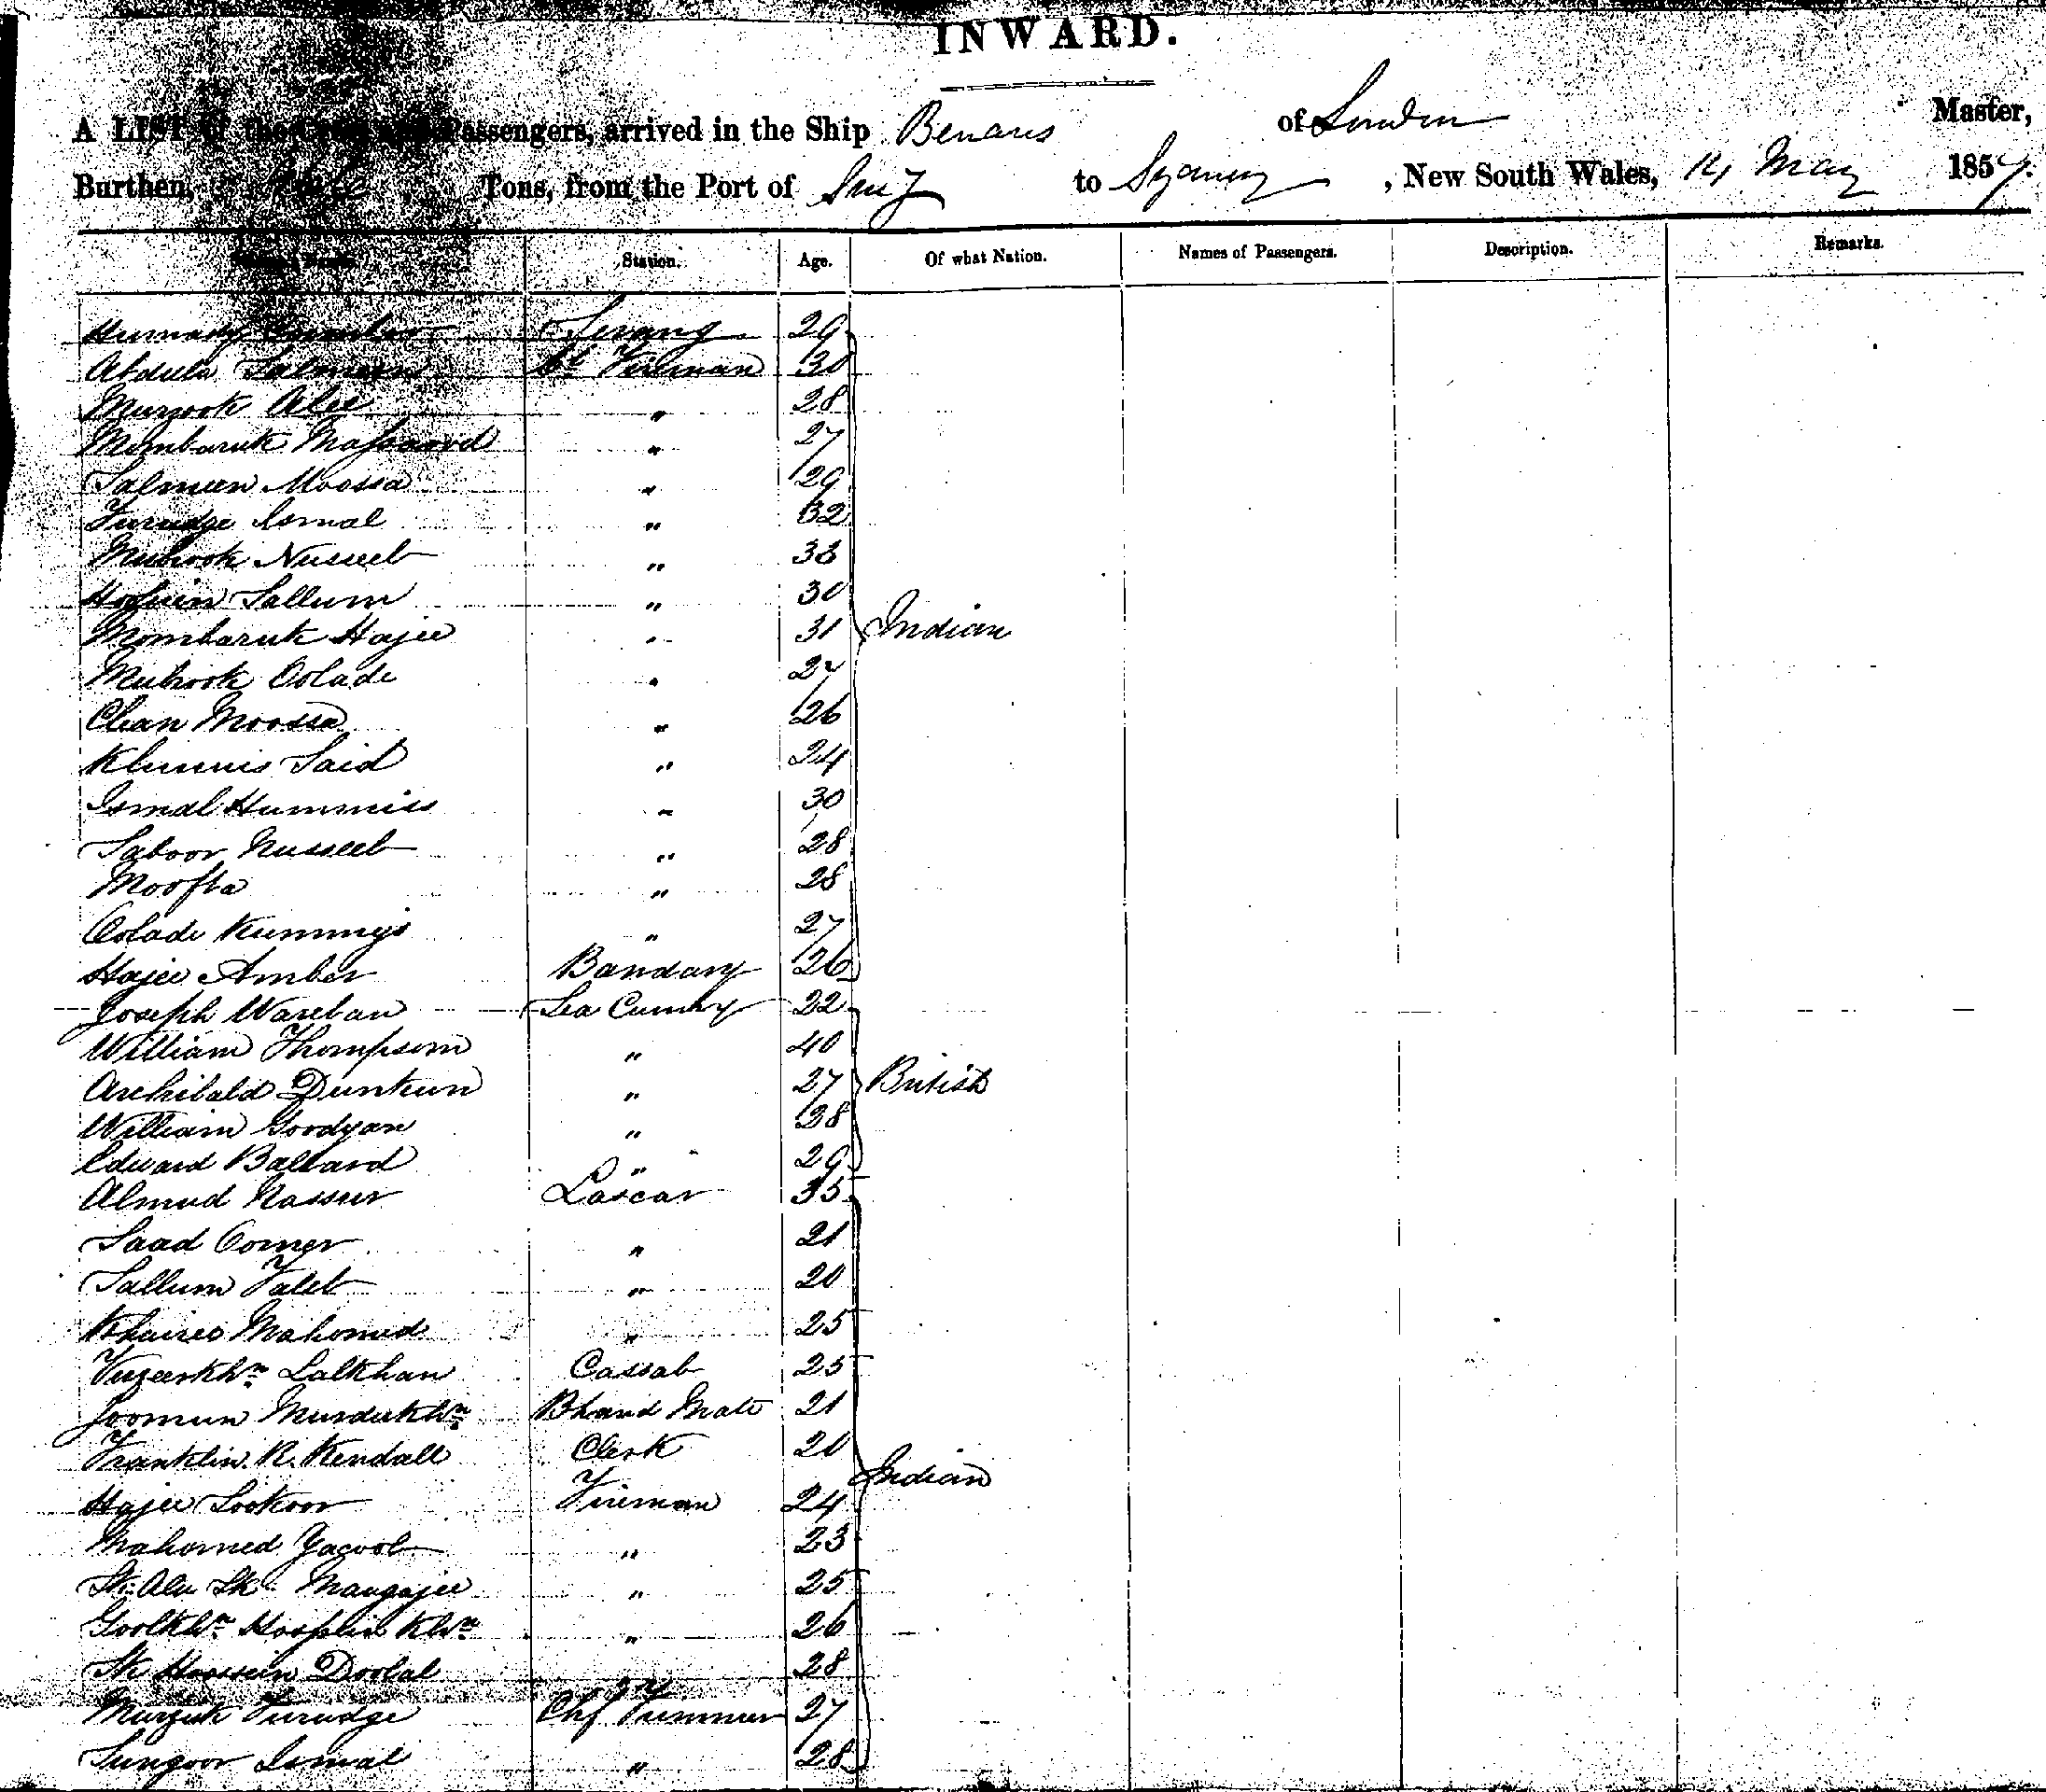 INWARD.
A LIST of the Crew and Passengers, arrived in the Ship Benares of London Master,
Burthen, Tons, from the Port of Suez to Sydney, New South Wales, 14 May 1859.
Station. Age. Of what Nation. Names of Passengers. Description. Remarks.
Serang 29
Abdula Salmeen Ct Fireman 30
Murzook Alee " 28
Mombaruk Massaood " 27
Salmeen Moossa " 29
Furudge Ismal " 32
Mubrook Nusseeb " 33
Hossein Sallum " 30
Mombaruk Hajee " 31 Indian
Mubrook Oolade " 27
Moossa " 26
Said " 24
Ismal Hummiss " 30
Saboor Nusseeb " 28
Moofta " 28
Oolade Kummys " 27
Hajee Amber Bandary 26
Joseph Sea Cunny 22
William Thompson " 40
Archibald Dunkun " 27 British
William Goodyan " 38
Edward Ballard " 29
Almud Nasser Lascar 35
Saad Oomer " 21
Sallum Falet " 20
Mahomed " 25
Vuzeerkhn Lalkhan Cassab 25
Joomun Murdukhn Bhand Mate 21
Franklin R. Kendall Clerk 20 Indian
Hajee Sookoor Fireman 24
Mahomed Yacoob " 23
Sk. Alu Sk " 25
Goolkhn Khn " 26
Sk Hoosein Doolal 28
Murzuk Furudge Chf 27
Sungoor Ismal " 28